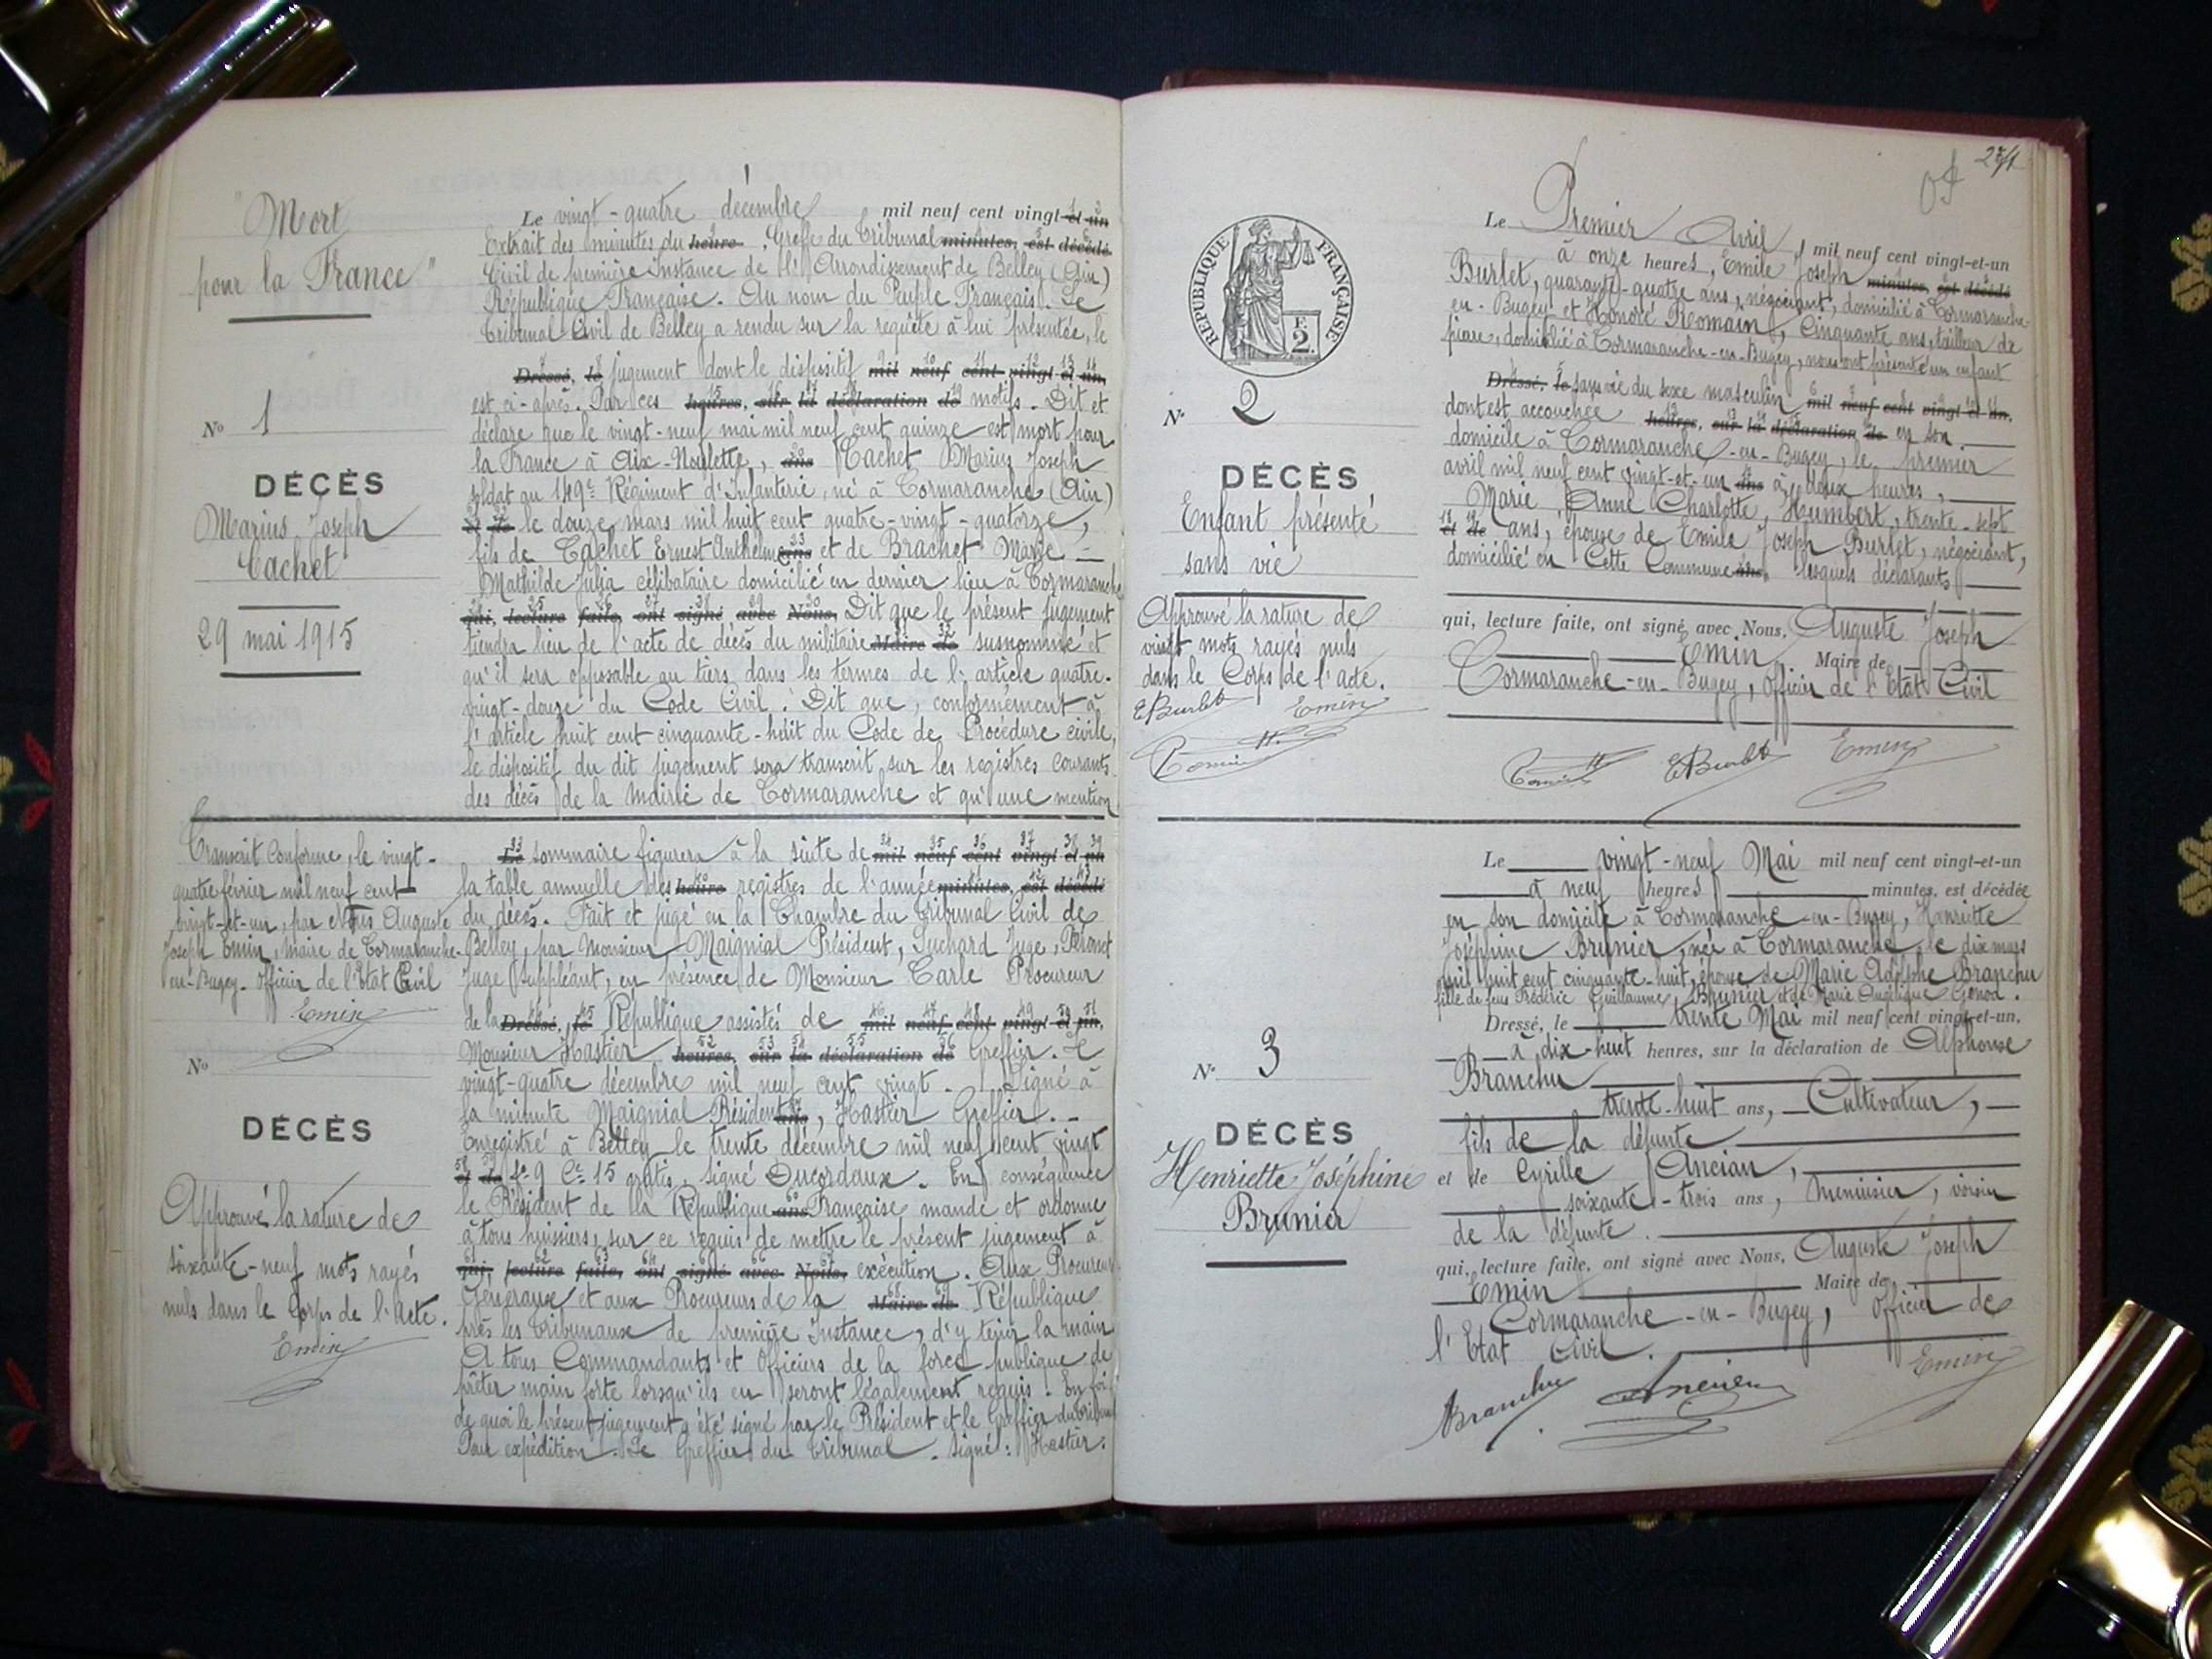 "Mort
pour la France"
N° 1
DÉCÈS
Marius Joseph
Cachet
29 mai 1915
Le vingt-quatre décembre mil neuf cent vingt et un
Extrait des minutes du heure Greffe du Tribunal minutes, est décédé
Civil de première Instance de l'Arrondissement de Belley (Ain)
République Française. Au nom du Peuple Français. Le
Tribunal Civil de Belley a rendu sur la requête à lui présentée, le
Dressé, le jugement dont le dispositif mil neuf cent vingt et un,
est ci-après. Par ces heures, sur la déclaration de motifs. Dit et
déclare que le vingt-neuf mai mil neuf cent quinze est mort pour
la France à Aix-Noulette, ans Cachet Marius Joseph
soldat au 149e Régiment d'Infanterie, né à Cormaranche (Ain)
et de le douze mars mil huit cent quatre-vingt-quatorze,
fils de Cachet Ernest Anthelme ans et de Brachet Marie
Mathilde Julia célibataire domicilié en dernier lieu à Cormaranche
qui, lecture faite, ont signé avec Nous, Dit que le présent jugement
tiendra lieu de l'acte de décès du militaire Maire de susnommé et
qu'il sera opposable au tiers dans les termes de l'article quatre-
vingt-douze du Code Civil. Dit que, conformément à
l'article huit cent cinquante-huit du Code de Procédure civile,
le dispositif du dit jugement sera transcrit sur les registres courants
des décès de la mairie de Cormaranche et qu'une mention
Transcrit conforme, le vingt-
quatre février mil neuf cent
vingt-et-un, par Nous Auguste
Joseph Emin, maire de Cormaranche-
en-Bugey. Officier de l'Etat Civil
Emin
N°
DÉCÈS
Approuvé la rature de
soixante-neuf mots rayés
nuls dans le Corps de l'Acte.
Emin
Le sommaire figurera à la suite de mil neuf cent vingt et un
la table annuelle des heure registres de l'année minutes, est décédé
du décès. Fait et jugé en la Chambre du Tribunal Civil de
Belley, par Monsieur Maignial Président, Suchard Juge,
Juge suppléant, en présence de Monsieur Carle Procureur
de la Dressé, le République assistés de mil neuf cent vingt et un,
Monsieur Hastier heures, sur la déclaration de Greffier. Le
vingt-quatre décembre mil neuf cent vingt. Signé à
la minute Maignial Président ans, Hastier Greffier.
Enregistré à Belley le trente décembre mil neuf cent vingt
et de f° 9 Ce 15 gratis. signé Ducordeaux. En conséquence
le Président de la République ans Française mande et ordonne
à tous huissiers, sur ce requis de mettre le présent jugement à
qui, lecture faite, ont signé avec Nous, exécution. Aux Procureurs
Généraux et aux Procureurs de la Maire de République
près les Tribunaux de première Instance, d'y tenir la main
A tous Commandants et Officiers de la force publique de
prêter main forte lorsqu'ils en seront légalement requis. En foi
de quoi le présent jugement a été signé par le Président et le Greffier du Tribunal
Pour expédition. Le Greffier du Tribunal. signé: Hastier.
27/1
RÉPUBLIQUE FRANÇAISE
E
2.
N° 2
DÉCÈS
Enfant présenté
sans vie
Approuvé la rature de
vingt mots rayés nuls
dans le Corps de l'acte.
EBurlet Emin
Romain H.
Le Premier Avril, mil neuf cent vingt-et-un
à onze heures, Emile Joseph minutes, est décédé
Burlet, quarante-quatre ans, négociant, domicilié à Cormaranche-
en-Bugey et Honoré Romain, Cinquante ans, tailleur de
pierre, domicilié à Cormaranche-en-Bugey, nous ont présenté un enfant
Dressé, le sans vie du sexe masculin mil neuf cent vingt et un,
dont est accouchée heures, sur la déclaration de en son
domicile à Cormaranche-en-Bugey, le premier
avril mil neuf cent vingt-et-un ans à deux heures,
Marie Anne Charlotte Humbert, trente-sept
et de ans, épouse de Emile Joseph Burlet, négociant,
domicilié en Cette Commune ans, lesquels déclarants
qui, lecture faite, ont signé avec Nous, Auguste Joseph
Emin Maire de
Cormaranche-en-Bugey, Officier de l'Etat Civil
Romain H EBurlet Emin
N° 3
DÉCÈS
Henriette Joséphine
Brunier
Le vingt-neuf Mai mil neuf cent vingt-et-un
à neuf heures minutes, est décédée
en son domicile à Cormaranche-en-Bugey, Henriette
Joséphine Brunier, née à Cormaranche, le dix mars
mil huit cent cinquante-huit, épouse de Marie Adolphe Branchu
fille de feus Frédéric Guillaume Brunier et de Marie Angélique Genod.
Dressé, le trente Mai mil neuf cent vingt-et-un,
à dix-huit heures, sur la déclaration de Alphonse
Branchu
trente-huit ans, Cultivateur,
fils de la défunte
et de Cyrille Ancian,
soixante-trois ans, Menuisier, voisin
de la défunte.
qui, lecture faite, ont signé avec Nous, Auguste Joseph
Emin Maire de
Cormaranche-en-Bugey, Officier de
l'Etat Civil.
Branchu Ancian Emin